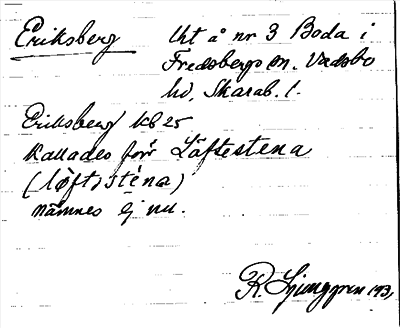 Eriksberg
Uht å nr 3 Boda i
Fredsbergs sn. Vadsbo
hd, Skarab. l.
Eriksberg kb 25
Kallades förr Löftestena
(løftəste̍na)
nämnes ej nu.
R. Ljunggren 193